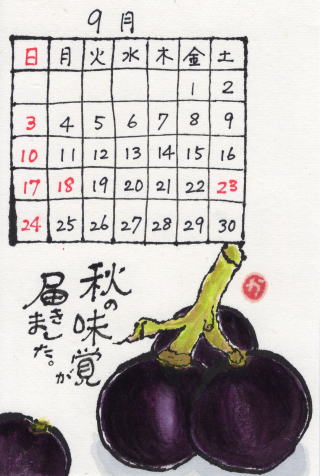 9月
日 月 火 水 木 金 土
1 2
3 4 5 6 7 8 9
10 11 12 13 14 15 16
17 18 19 20 21 22 23
24 25 26 27 28 29 30
秋の味覚が
届きました。
か